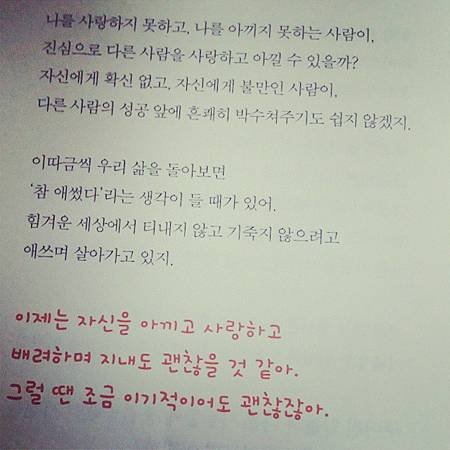 나를 사랑하지 못하고, 나를 아끼지 못하는 사람이,
진심으로 다른 사람을 사랑하고 아낄 수 있을까?
자신에게 확신 없고, 자신에게 불만인 사람이,
다른 사람의 성공 앞에 흔쾌히 박수쳐주기도 쉽지 않겠지.
이따금씩 우리 삶을 돌아보면
'참 애썼다'라는 생각이 들 때가 있어.
힘겨운 세상에서 티내지 않고 기죽지 않으려고
애쓰며 살아가고 있지.
이제는 자신을 아끼고 사랑하고
배려하며 지내도 괜찮을 것 같아.
그럴 땐 조금 이기적이어도 괜찮잖아.